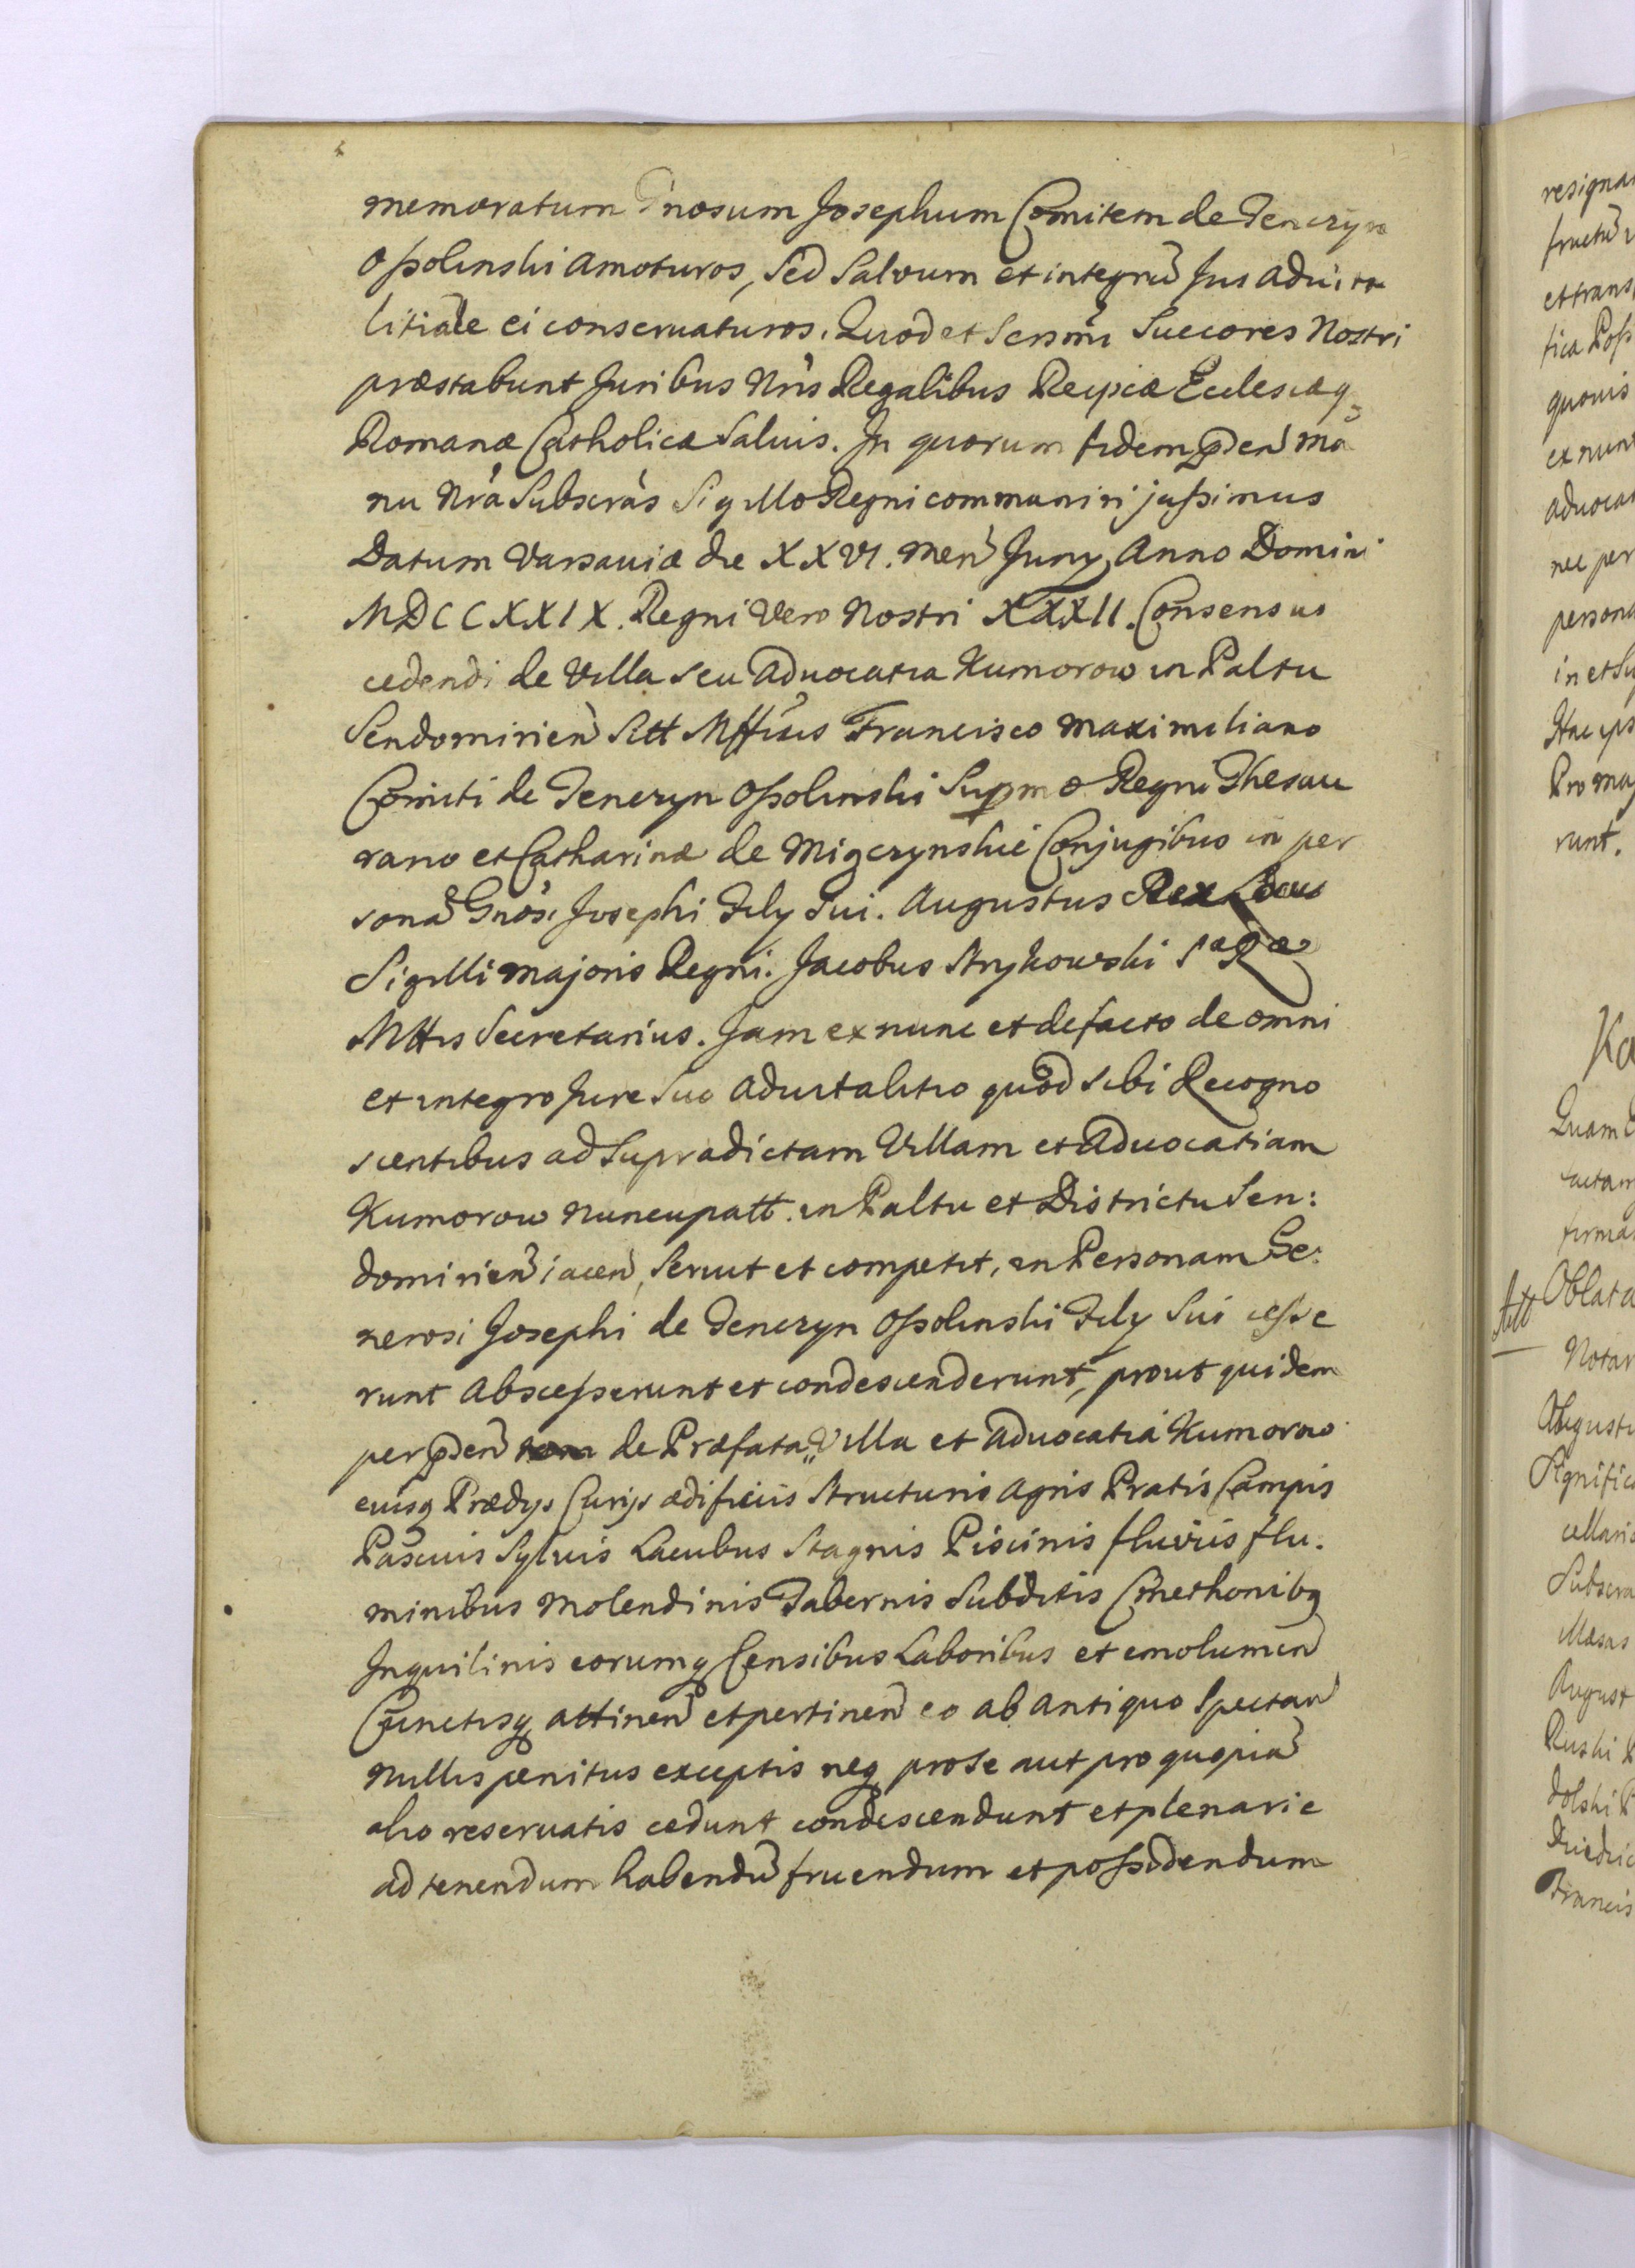 memoratum Gnosum Josephum Comitem de Tenczyn
Ossolinski amoturos, sed salvum et integrũ Jus advita
litiale ei conservaturos. Quod et Sersmi Succores Nostri
præstabunt Juribus Nris Regalibus Reipcæ Ecclesiæq;
Romanæ Catholicæ salvis. In quorum fidem pden ma
nu Nra subscras Sigillo Regni communiri jussimus
Datum Varsaviæ die XXVI. men Juny, Anno Domini
MDCCXXIX. Regni vero Nostri XXXII. Consensus
cedendi de Villa seu Advocatia Kumorow in Paltu
Sendomirien Sitt Mffcis Francisco Maximiliano
Comiti de Tenczyn Ossolinski Supmo Regni Thesau
rario et Catharinæ de Miączynskie Conjugibus in per
sonã Gnosi Josephi Fily Sui. Augustus Rex Locus
Sigilli majoris Regni. Jacobus Strykowski S R
Mttis Secretarius. Jam ex nunc et de facto de omni
et integro Jure suo advitalitio quod sibi Recogno
scentibus ad supradictam Villam et Advocatiam
Kumorow nuncupatt. in Paltu et Districtu Sen:
domirien jacen, servit et competit, in Personam Ge:
nerosi Josephi de Tenczyn Ossolinski Fily Sui cesse
runt abscesserunt et condescenderunt, prout quidem
per pden de Præfata Villa et Advocatia Kumorow
eiusq Prædys Curys ædificiis structuris agris Pratis Campis
Pascuis Sylvis Lacubus Stagnis Piscinis fluviis flu:
minibus Molendinis Tabernis Subditis Cmethonibq
Inquilinis eorumq Censibus Laboribus et emolumen
Cunctisq attinen et pertinen eo ab antiquo spectan
nullis penitus exceptis neq pro se aut pro quopiã
alio reservatis cedunt condescendunt et plenarie
ad tenendum habendũ fruendum et possidendum
resigna
fructũ
et trans
tica Poss
quovis
ex nunc
advocat
nec per
persona
in et su
Hac ips
Pro maj
runt.
Ka
Quam
factam
firma
Att
Oblata
Notar
August
Significa
cellari
Subscra
August
Francis